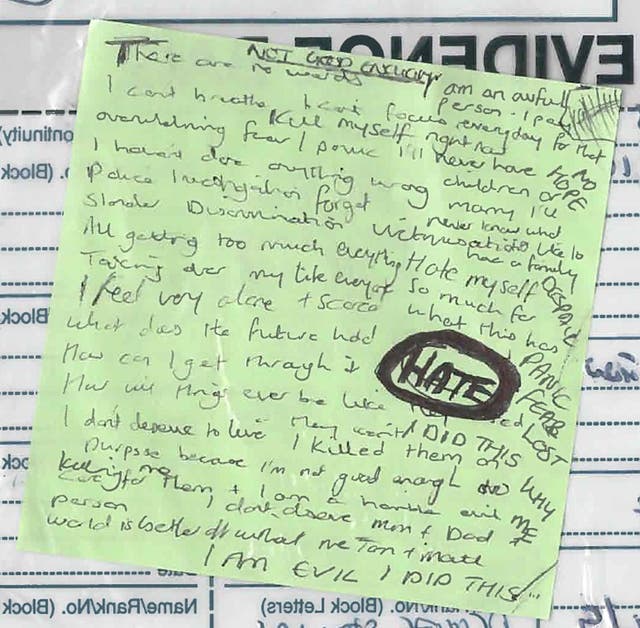 EVIDENCE
NOT GOOD ENOUGH
There are no words am an awful person. I pay
I can't breathe I can't focus everyday for that
Kill myself right now NO
overwhelming fear / panic I'll never have HOPE
I haven't done anything wrong children or marry I'll
Police investigation forget never know what
Slander Discrimination Victimisation like to have a family
All getting too much everything Hate myself DESPAIR
Taking over my life so much for
I feel very alone + scared what this has
What does the future hold PANIC
How can I get through it HATE FEAR
How will things ever be like LOST
I don't deserve to live I DID THIS WHY
I killed them on
purpose because I'm not good enough to ME
care for them + I am a horrible evil
person I don't deserve mum + Dad
world is better off without me
I AM EVIL I DID THIS
Name/Rank/No. (Block Letters)